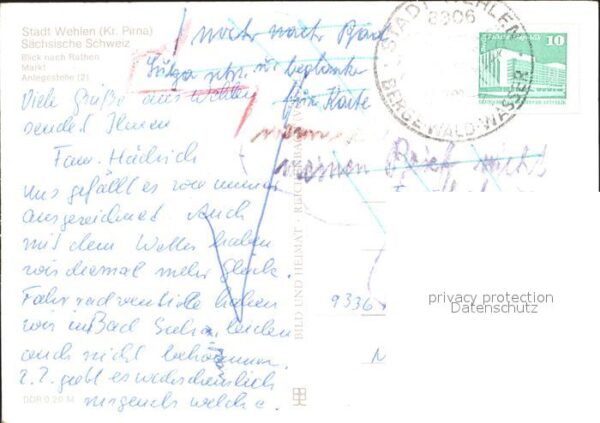 Stadt Wehlen (Kr. Pirna)
Sächsische Schweiz
Blick nach Rathen
Markt
Anlegestelle (2)
noch nach Bad
Sulza
für Karte
meinen Brief nicht
STADT WEHLEN
8306
BERGE·WALD·WASSER
10
Viele Grüße aus Wehlen
sendet Ihnen
Fam. Hädrich
Uns gefällt es wie immer
ausgezeichnet. Auch
mit dem Wetter haben
wir diesmal mehr Glück.
Fahrradventile haben
wir in Bad Schandau
auch nicht bekommen.
Z. Z. gibt es wahrscheinlich
nirgends welche.
BILD UND HEIMAT REICHENBACH
9336
N
privacy protection
Datenschutz
DDR 0,20 M